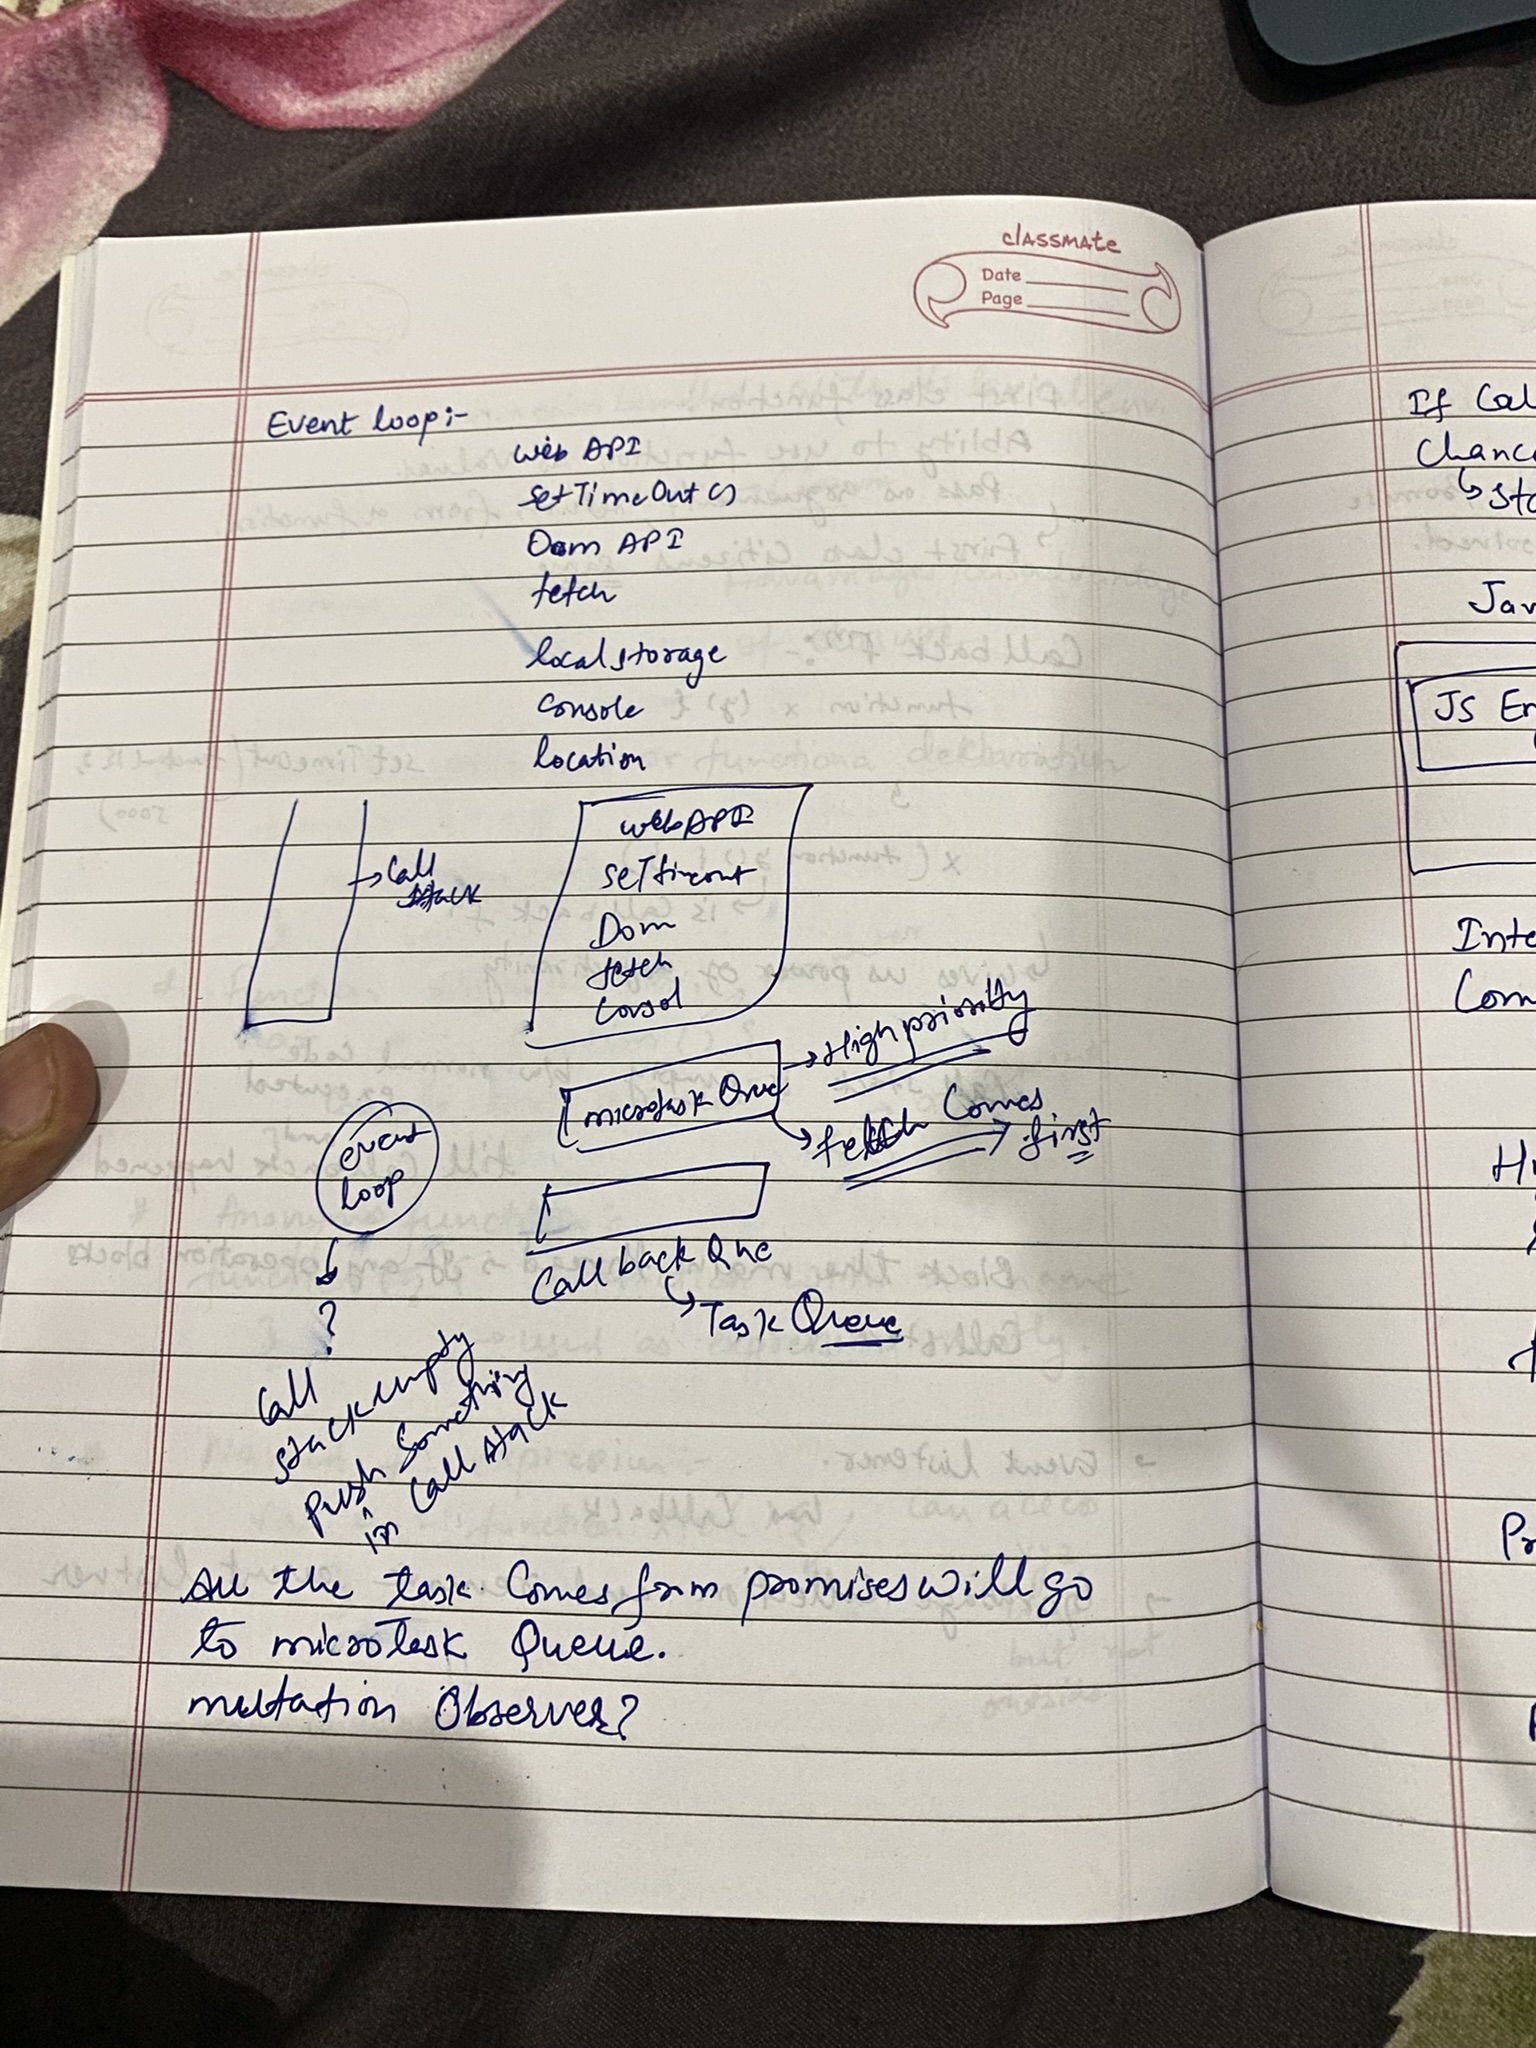 classmate
Date
Page
Event loop:-
web API
setTimeOut()
Dom API
fetch
local storage
console
location
call
stack
web API
setTimeout
Dom
fetch
Consol
microtask Que
High priority
fetch Comes
first
event
loop
?
Call
stack empty
push something
in call stack
Call back Que
Task Queue
All the task Comes from promises will go
to microtask Queue.
mutation Observer?
If Cal
Chanc
Jav
JS En
Inte
Com
H
Pr